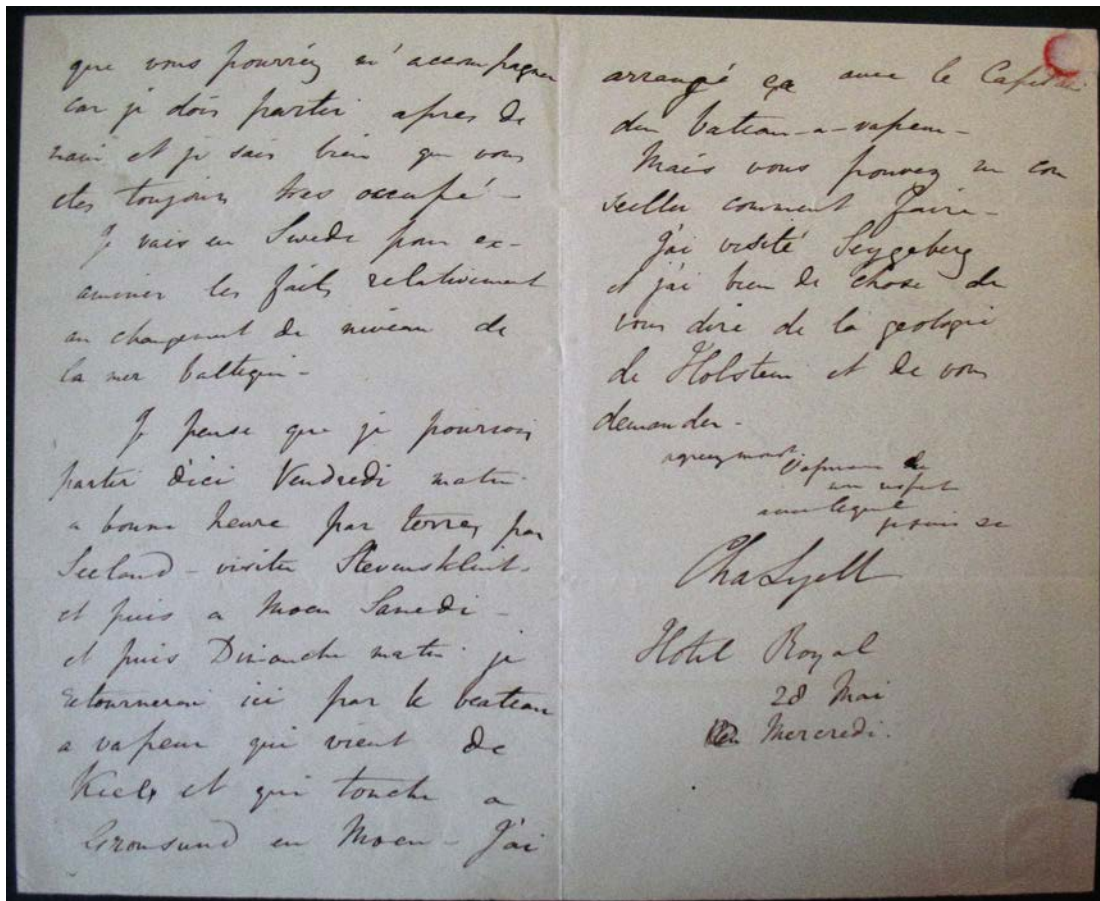 que vous pourriéz m'accompagner
car je dois partir apres de
main et je sais bien que vous
etes toujours tres occupé -
Je vais en Swede pour ex-
aminer les faits relativement
au changement de niveau de
la mer baltique -
Je pense que je pourrois
partir d'ici Vendredi matin
a bonne heure par terre, par
Seeland - visiter Stevensklint -
et puis a Moen Samedi -
et puis Dimanche matin je
retournerai ici par le bateau
a vapeur qui vient de
Kiel et qui touche a
Gronsund en Moen - J'ai
arrangé ça avec le Capitain
du bateau-a-vapeur -
Mais vous pouvez me con
seiller comment faire -
J'ai visité Seygeberg
et j'ai bien de chose de
vous dire de la geologie
de Holstein et de vous
demander -
de
avec lequel
je suis
Cha Lyell
Hotel Royal
28 Mai
Mercredi.